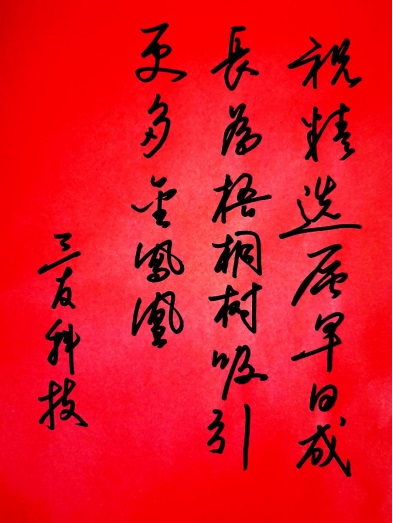 祝精选居早日成
長为梧桐树吸引
更多金鳳凰
三友科技